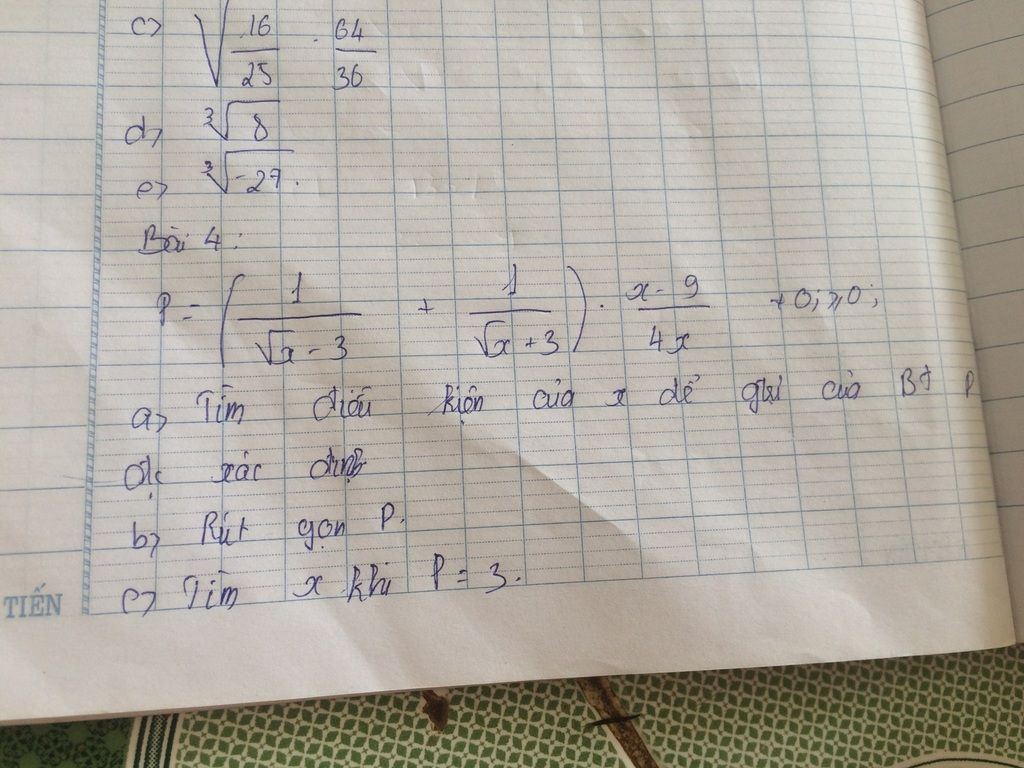 c) √16/25 · 64/36
d) ³√8
e) ³√-27.
Bài 4:
P = (1/(√x - 3) + 1/(√x + 3)) · (x - 9)/4x ≠0; ≥0;
a) Tìm điều kiện của x để gtrị của BT P
đc xác định
b) Rút gọn P.
c) Tìm x khi P = 3.
TIẾN